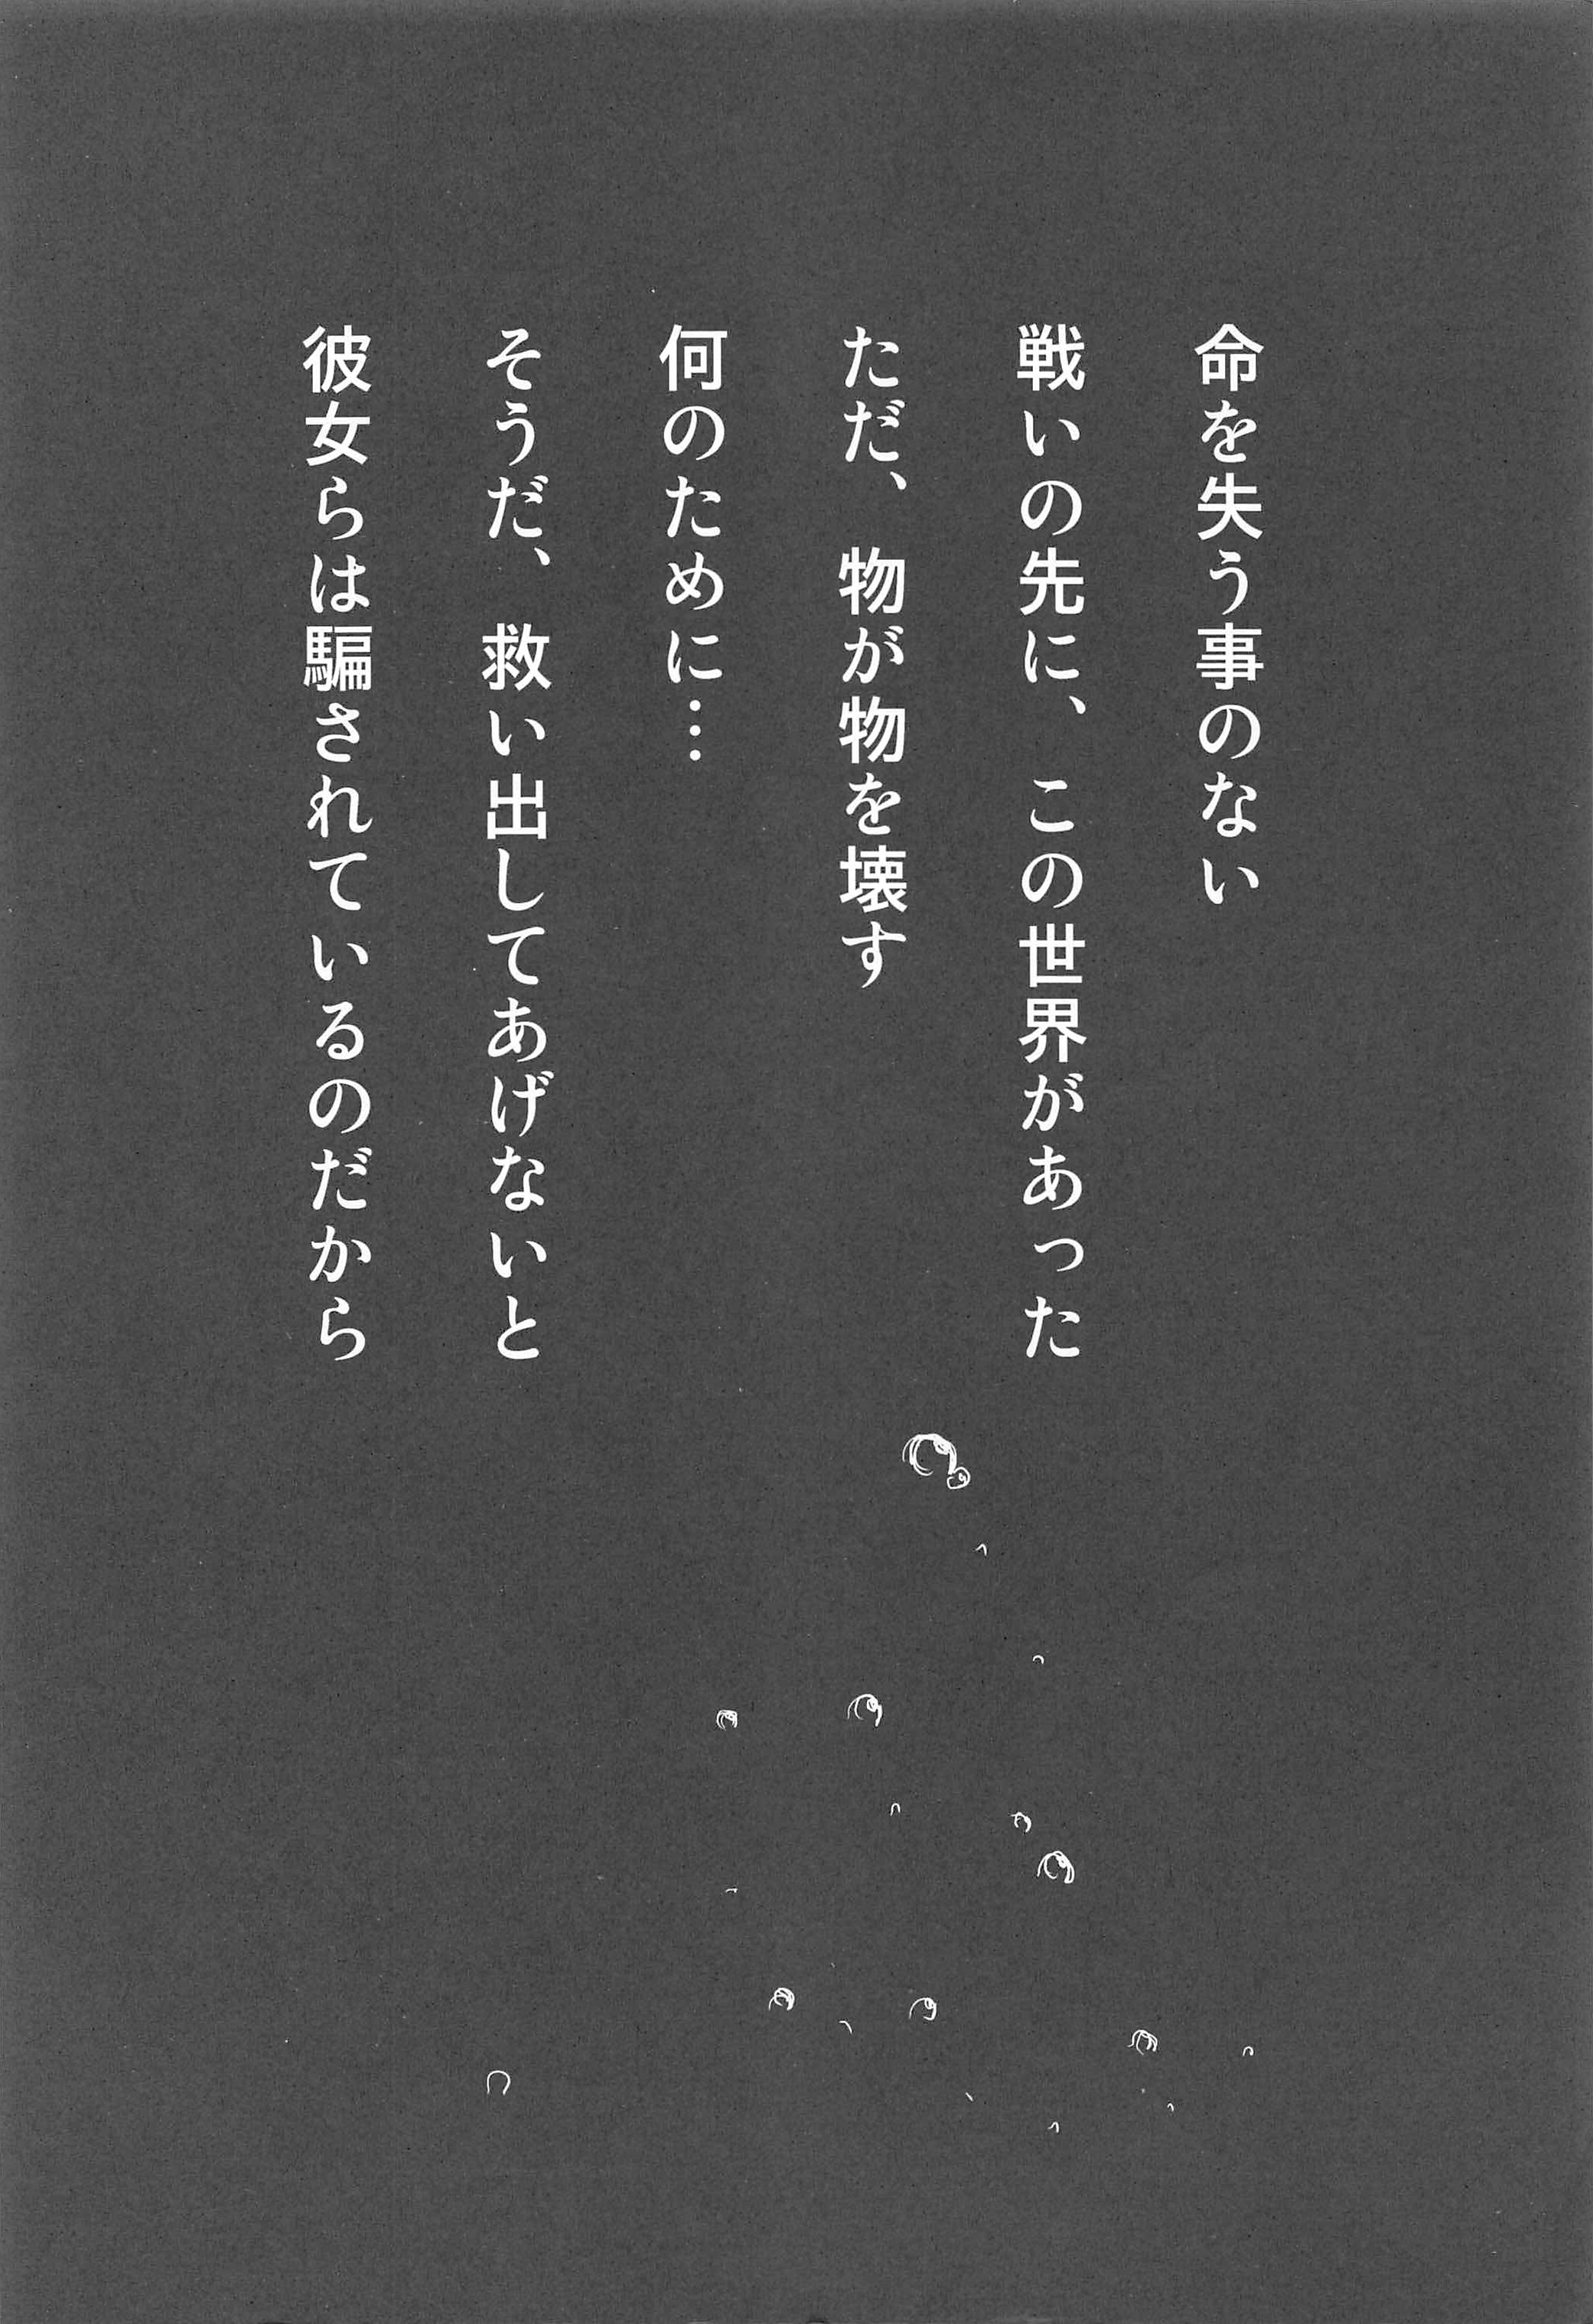 命を失う事のない
戦いの先に、この世界があった
ただ、物が物を壊す
何のために…
そうだ、救い出してあげないと
彼女らは騙されているのだから